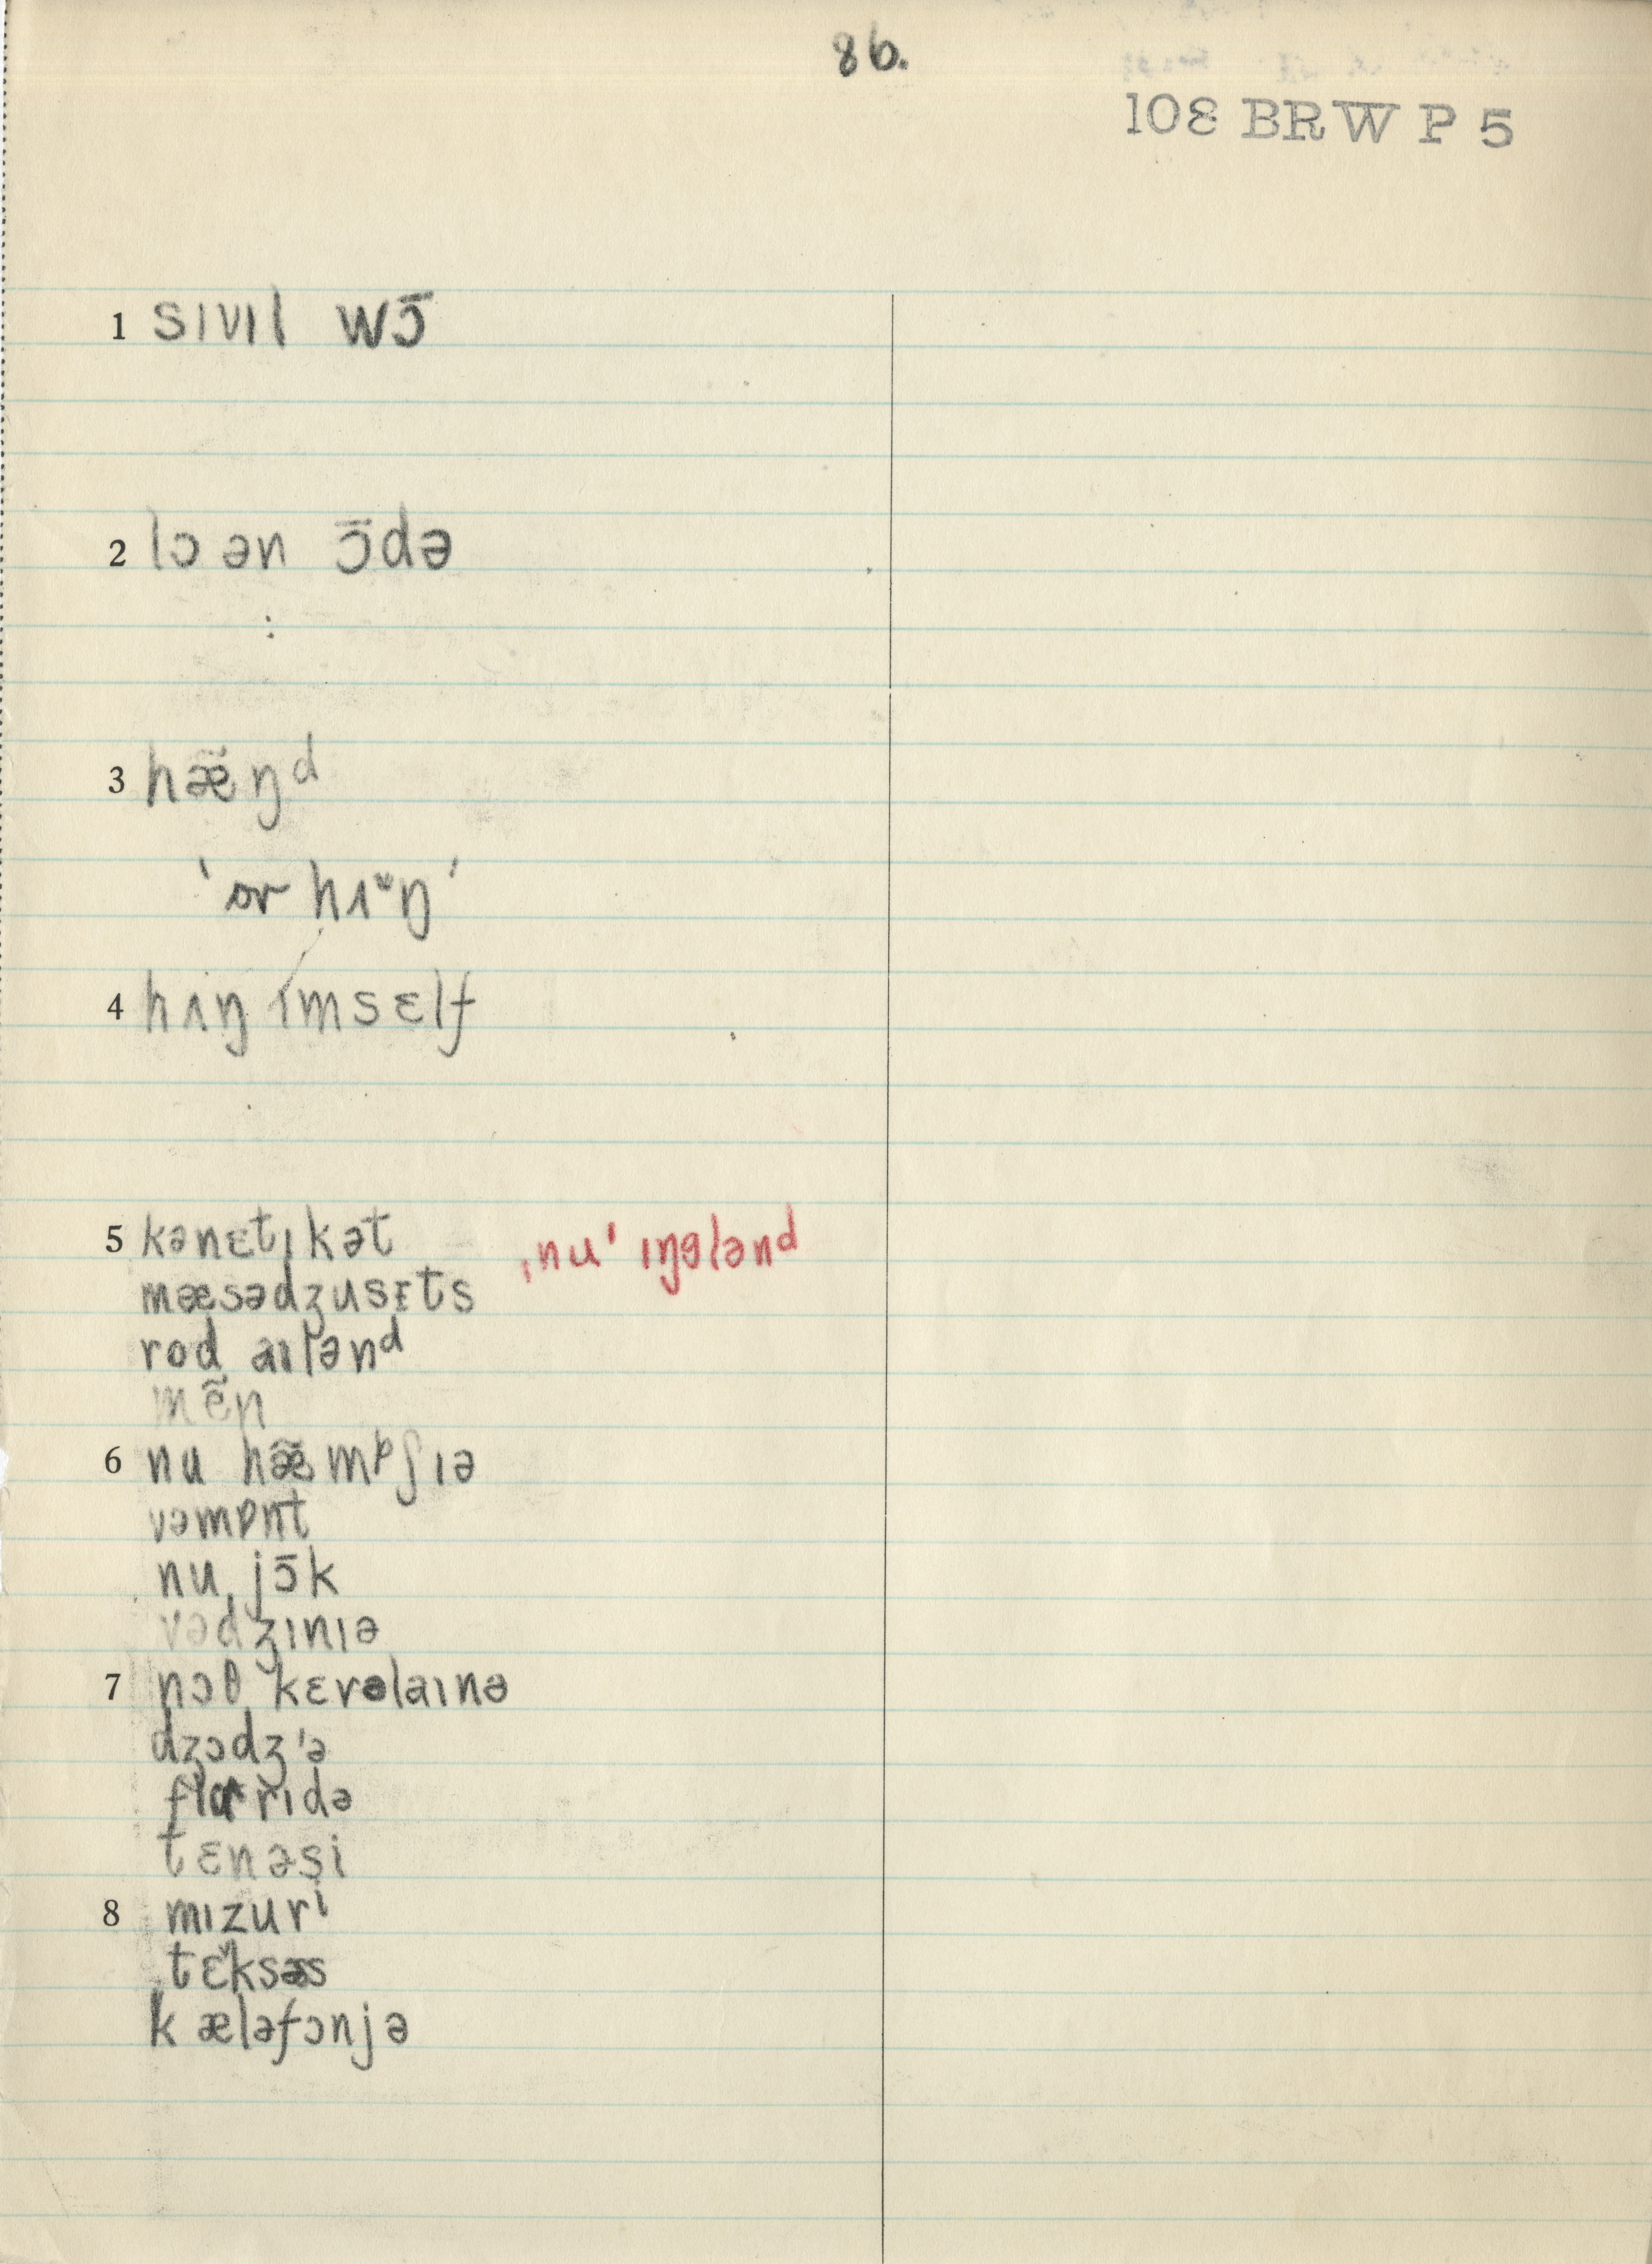 86.
108 BRW P 5
1 sɪvɪl wɔ̄
2 lɔ ən ɔ̄də
3 hæ̃ŋᵈ
'or hʌᵚŋ'
4 hʌŋ ɪmsɛlf
5 kənɛtɪkət ˌnu' ɪŋglənd
mæsədʒusɛts
rod aɪlənᵈ
mẽn
6 nu hæ̃mᵖʃɪə
vəmɒnt
nu jɔ̄k
vədʒɪnɪə
7 nɔθ kɛrəlaɪnə
dʒɔdʒ'ə
flɑrɪdə
tɛnəsi
8 mɪzurⁱ
tɛksəs
kæləfɔnjə